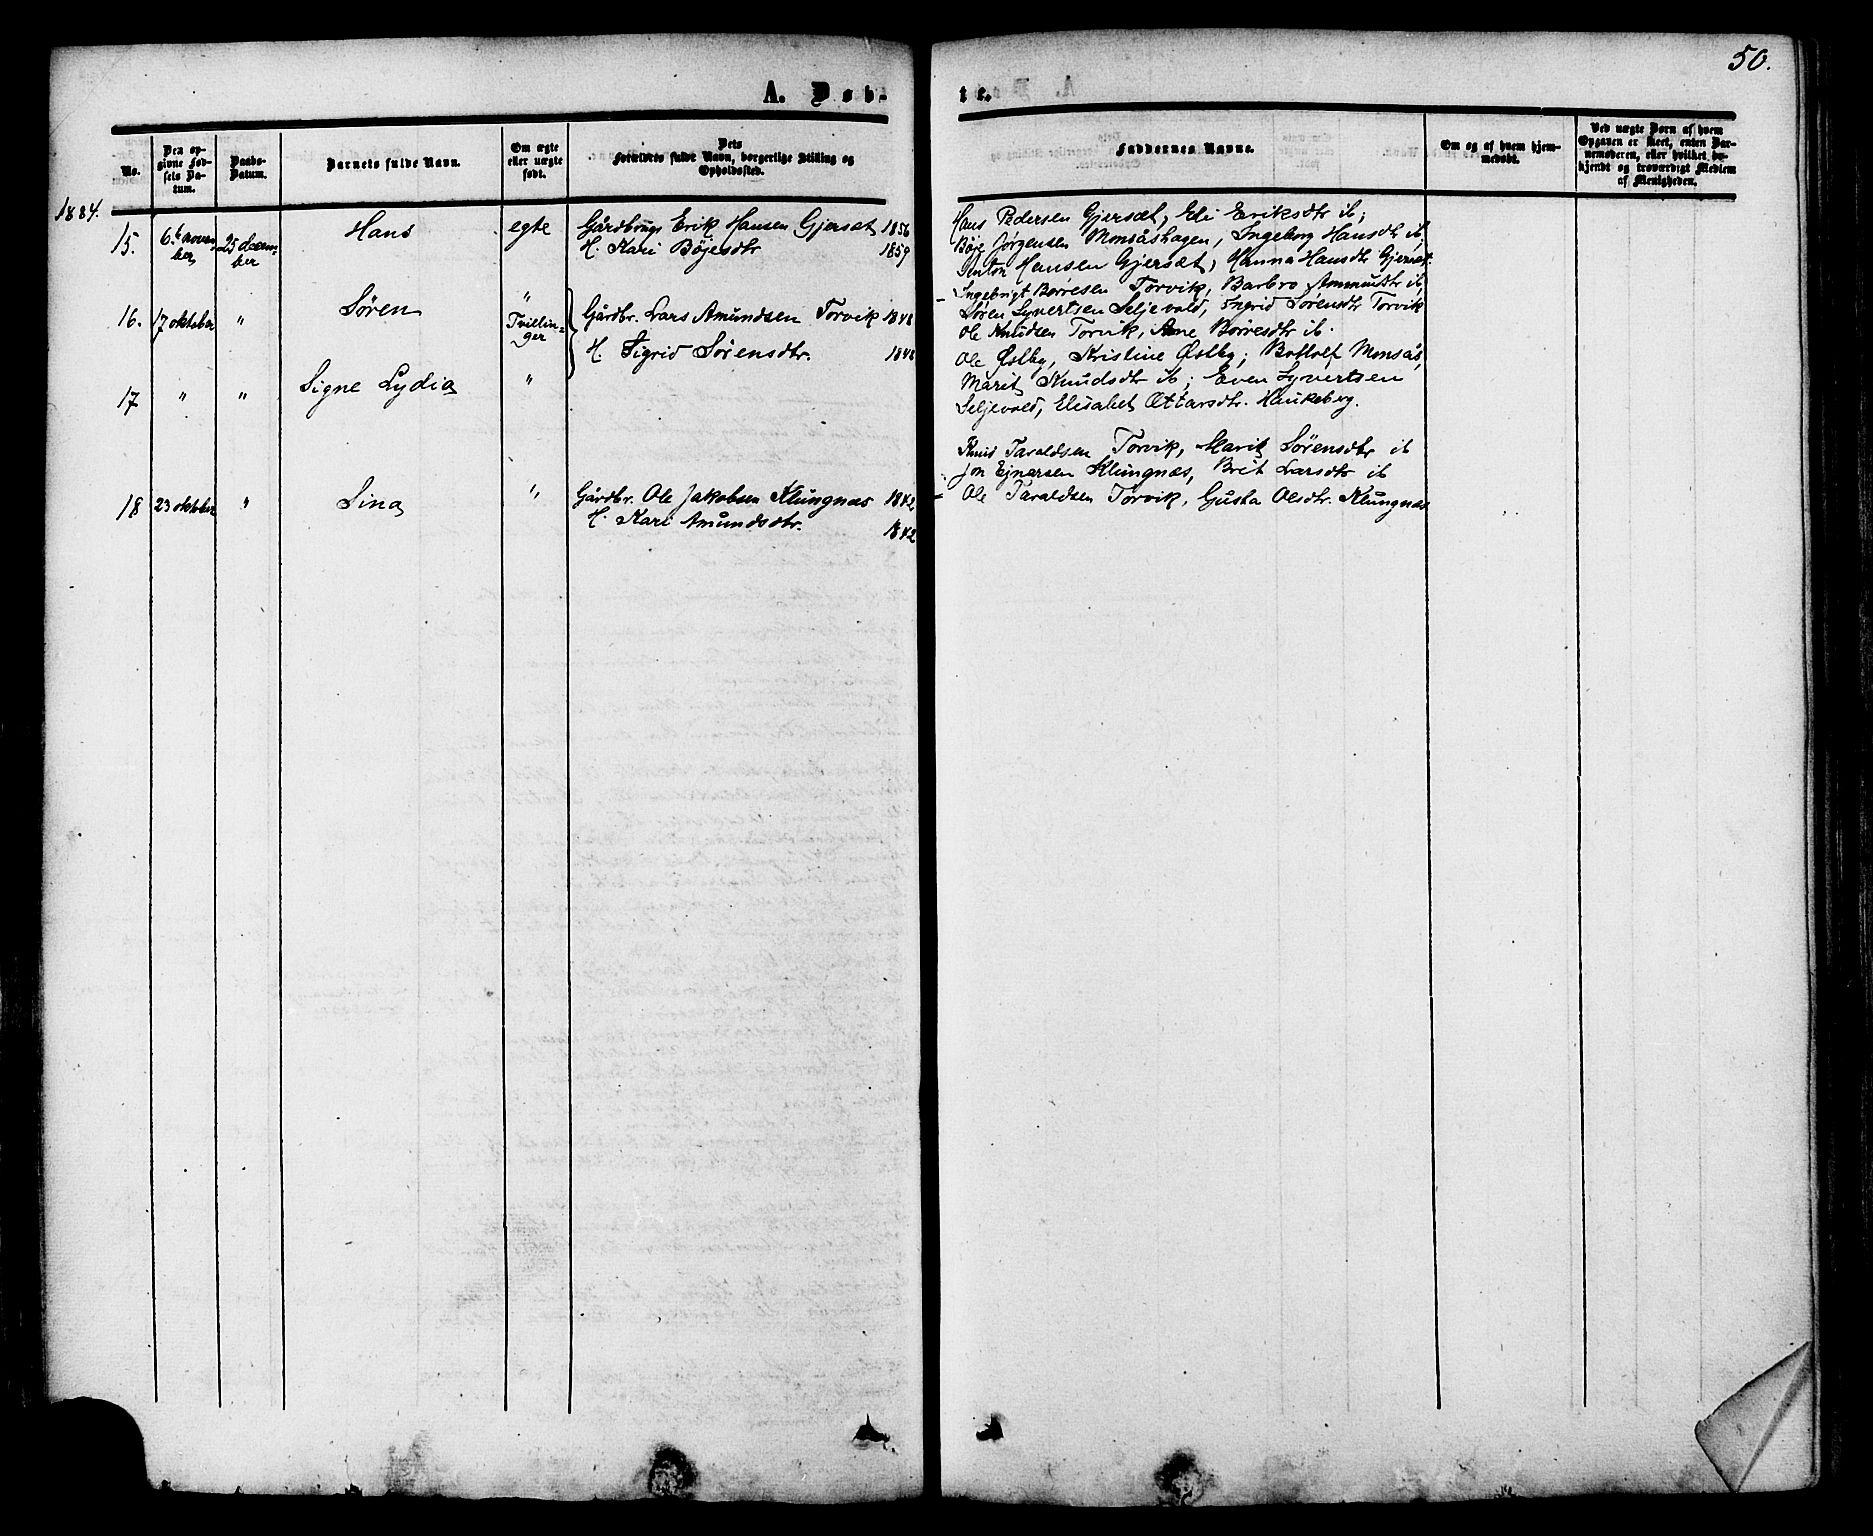 50.
A. Døb-
te.
No.
Den op-
givne Fød-
sels Da-
tum.
Daabs-
Datum.
Barnets fulde Navn.
Om ægte
eller uægte
født.
Dets
Forældres fulde Navn, borgerlige Stilling og
Opholdssted.
Faddernes Navne.
Om og af hvem hjem-
medøbt.
Ved uægte Børn af hvem
Opgaven er skeet, enten Bar-
nemoderen, eller hvilket be-
kjendt og troværdigt Medlem
af Menigheden.
1884.
15. 6te novem-
ber 25 decem-
ber Hans egte Gårdbrug. Erik Hansen Gjersæt 1856
H. Kari Böjesdtr 1859
Hans Pedersen Gjersæt, Eli Eriksdtr ib;
Böje Jørgensen Monsåshagen, Ingeborg Hansdtr ib,
Anton Hansen Gjersæt, Hanna Hansdtr Gjersæt.
16. 17 oktober " Sören " Tvillin-
ger Gårdbr. Lars Amundsen Torvik 1848
H. Sigrid Sörensdtr. 1848
Ingebrigt Börresen Torvik, Barbro Ammundtr ib,
Sören Syvertsen Seljevold, Ingrid Sörensdtr Torvik
Ole Knudsen Torvik, Ane Börresdtr ib.
17 " " Signe Lydia "
Ole Østby, Kristine Østby; Bottolf Monsås,
Marit Knudsdtr ib; Even Syvertsen
Seljevold, Elisabet Ottarsdtr. Haukeberg.
18 23 oktober " Lina " Gårdbr. Ole Jakobsen Klungnæs 1842
H. Kari Amundsdtr. 1842
Knud Taraldsen Torvik, Marit Sörensdtr ib
Jon Ejnarsen Klungnæs, Brit Larsdtr ib
Ole Taraldsen Torvik, Gusta Olsdtr. Klungnæs